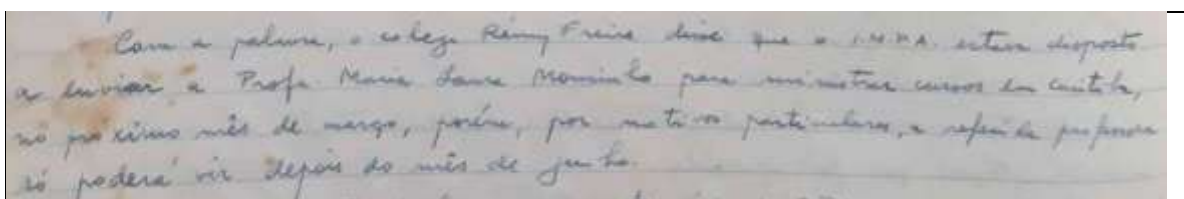 Com a palavra, o colega Rémy Freire disse que o I.M.P.A. estava disposto
a enviar a Profa. Maria Laura Mousinho para ministrar cursos em Curitiba,
no próximo mês de março, porém, por motivos particulares, a referida professora
só poderá vir depois do mês de junho.